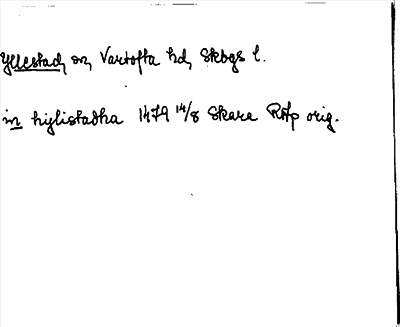 Yllestad, sn, Vartofta hd, Skbgs l.
in hylistadha 1479 14/8 Skara RAp orig.